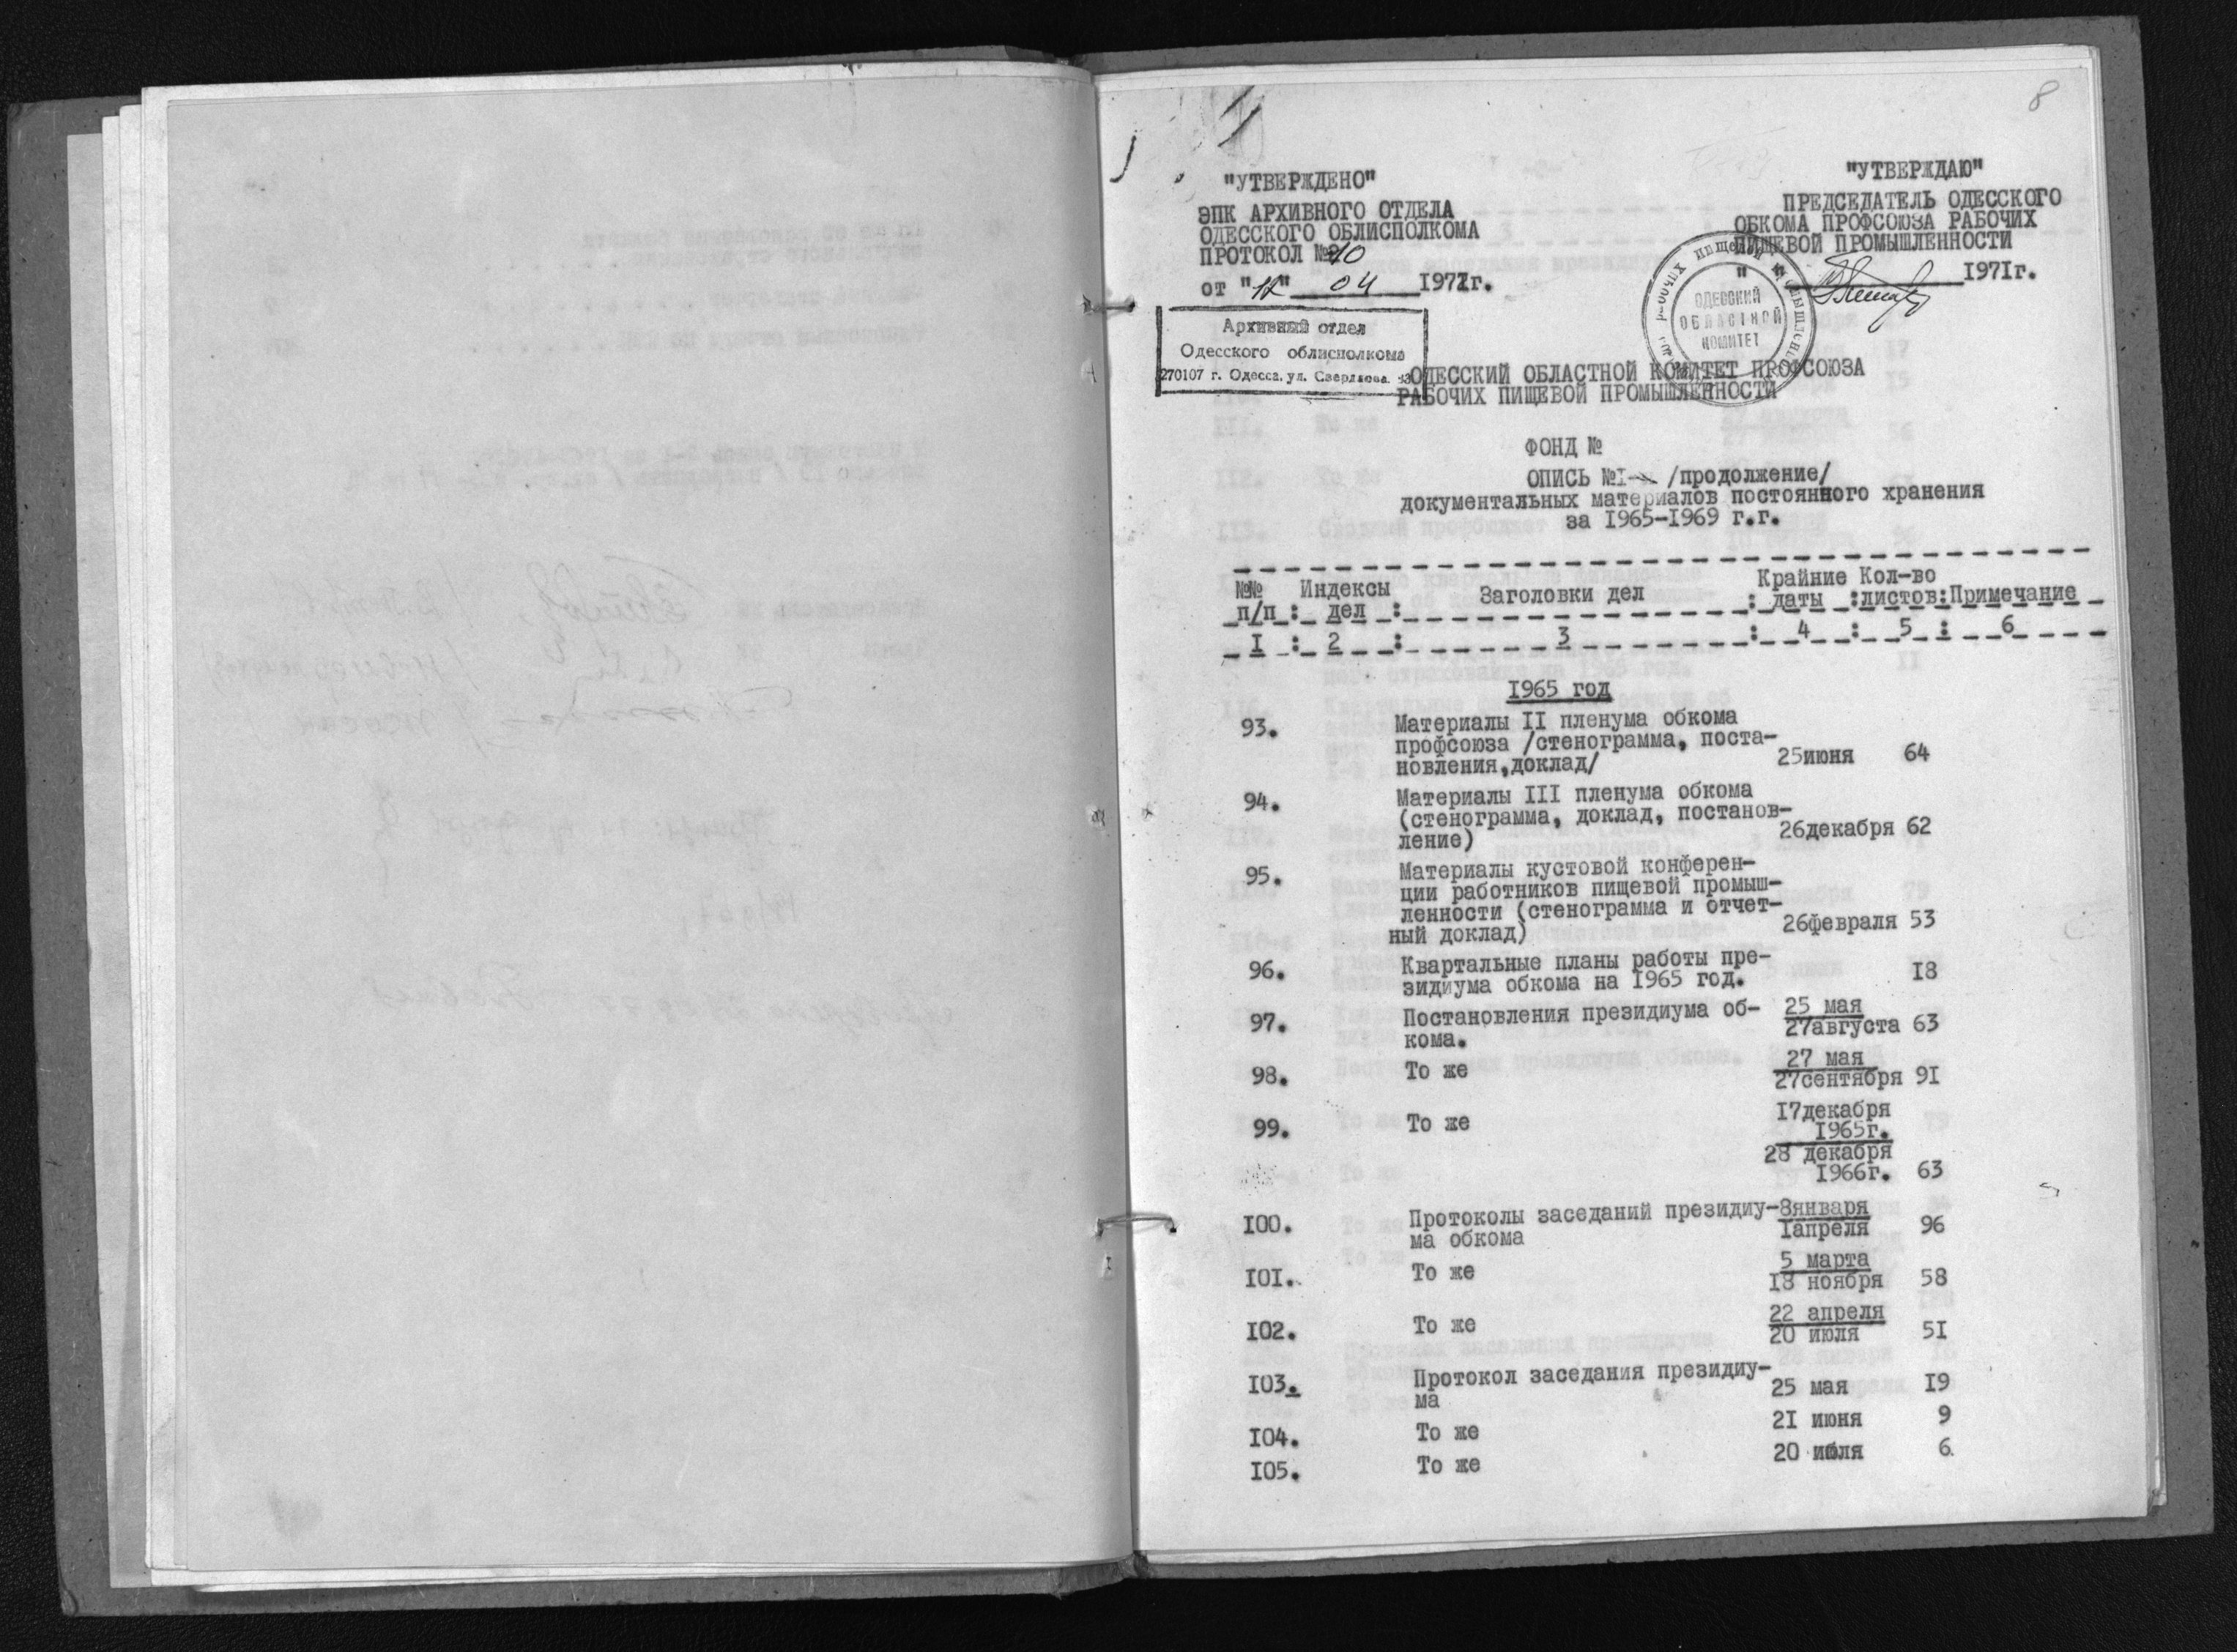 8
"УТВЕРЖДЕНО"
ЭПК АРХИВНОГО ОТДЕЛА
ОДЕССКОГО ОБЛИСПОЛКОМА
ПРОТОКОЛ № 10
от "12" 04 1971г.
"УТВЕРЖДАЮ"
ПРЕДСЕДАТЕЛЬ ОДЕССКОГО
ОБКОМА ПРОФСОЮЗА РАБОЧИХ
ПИЩЕВОЙ ПРОМЫШЛЕННОСТИ
" " 1971г.
Архивный отдел
Одесского облисполкома
270107 г. Одесса, ул. Свердлова
ОДЕССКИЙ
ОБЛАСТНОЙ
КОМИТЕТ
ОДЕССКИЙ ОБЛАСТНОЙ КОМИТЕТ ПРОФСОЮЗА
РАБОЧИХ ПИЩЕВОЙ ПРОМЫШЛЕННОСТИ
ФОНД №
ОПИСЬ №I /продолжение/
документальных материалов постоянного хранения
за I965-I969 г.г.
№№ Индексы Заголовки дел Крайние Кол-во
п/п : дел : : даты :листов:Примечание
I : 2 : 3 : 4 : 5 : 6
I965 год
93. Материалы II пленума обкома
профсоюза /стенограмма, поста-
новления,доклад/ 25июня 64
94. Материалы III пленума обкома
(стенограмма, доклад, постанов-
ление) 26декабря 62
95. Материалы кустовой конферен-
ции работников пищевой промыш-
ленности (стенограмма и отчет-
ный доклад) 26февраля 53
96. Квартальные планы работы пре-
зидиума обкома на I965 год. I8
97. Постановления президиума об- 25 мая
кома. 27августа 63
98. То же 27 мая
27сентября 9I
99. То же I7декабря
I965г.
28 декабря
I966г. 63
I00. Протоколы заседаний президиу- 8января
ма обкома Iапреля 96
I0I. То же 5 марта
I8 ноября 58
I02. То же 22 апреля
20 июля 5I
I03. Протокол заседания президиу-
ма 25 мая I9
I04. То же 2I июня 9
I05. То же 20 июля 6